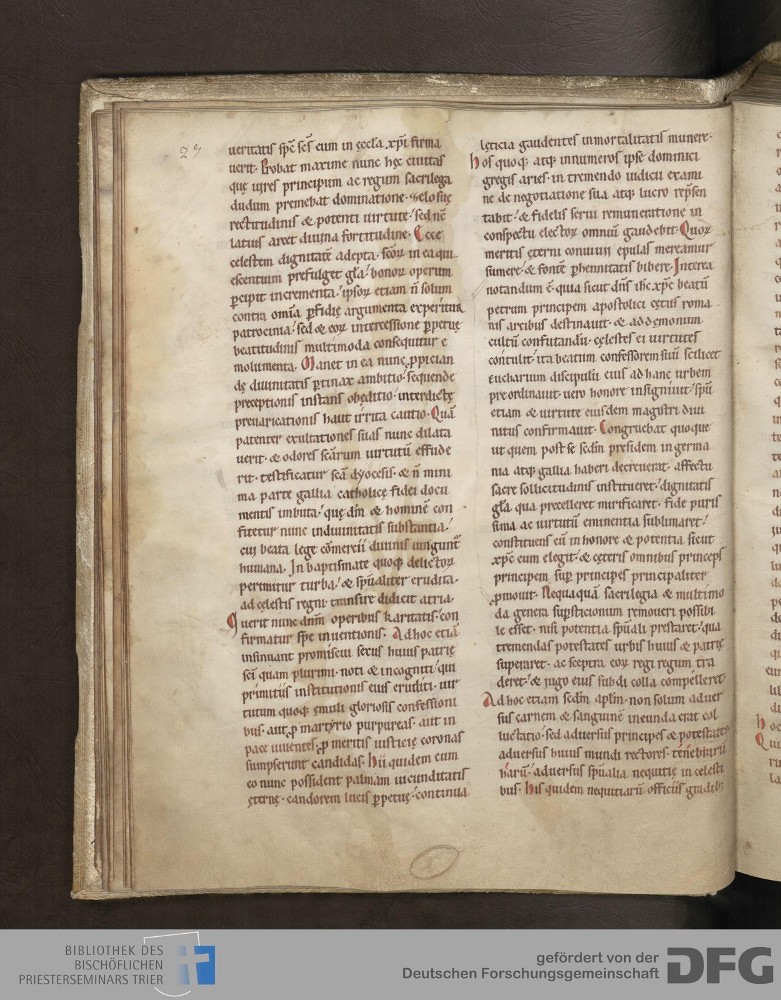 29
ueritatis spē sēs cum in ęccła xp̄i firma
uerit. Probat maxime nunc hęc ciuitas
quę uires principum ac regum sacrilega
dudum premebat dominatione. zelo suę
rectitudinis & potenti uirtute. sed nē
latius arcet diuina fortitudine. Ecce
celestem dignitatē adepta. sc̄oꝝ in ea qui
escentium prefulget gła. bonoꝝ operum
ꝑcipit incrementa. ipsoꝝ etiam n̄ solum
contra om̄ia ꝑfidię argumenta experitur
patrocinia. sed & eoꝝ intercessione ꝑpetuę
beatitudinis multimoda consequitur e
molumenta. Manet in ea nunc ꝓpician
dę diuinitatis ꝑtinax ambitio. sequende
preceptionis instans obęditio. interdictę
preuaricationis haut irrita cautio. Quā
patenter exultationes suas nunc dilata
uerit. & odores sc̄arum uirtutū effude
rit. testificatur sc̄a dyocesis. & n̄ mini
ma parte gallia catholicę fidei docu
mentis imbuta. quę dm̄ & hominē con
fitetur nunc induiuinitatis substantia.
cuj beata lege cōmercii diuinis iungunt᷑
humana. In baptismate quoqꝫ delictoꝝ
perimitur turba. & sp̄ualiter erudita.
ad cęlestis regni transire didicit atria.
Querit nunc dnm̄ operibus karitatis. con
firmatur spe inuentionis. Ad hoc etiā
insinuant promiscui sexus huius patrię
sc̄i quam plurimi. noti & incogniti. qui
primitiis institutionis eius eruditi. uir
tutum quoqꝫ ęmuli gloriosis confessioni
bus. aut ꝓ martyrio purpureas. aut in
pace uiuentes ꝓ meritis iusticię coronas
sumpserunt candidas. Hii quidem cum
eo nunc possident palmam iucunditatis
ęternę. candorem lucis ꝑpetuę. continua
lęticia gaudentes inmortalitatis munere.
Hos quoqꝫ atqꝫ innumeros ipse dominici
gregis aries. in tremendo iudicii exami
ne de negotiatione sua atqꝫ lucro rep̄sen
tabit. & fidelis serui remuneratione in
conspectu electoꝝ omniū gaudebit. Quoꝝ
meritis ęterni conuiuii epulas mereamur
sumere. & fontē phennitatis bibere. Interea
notandum ē. quia sicut dn̄s ih̄c xp̄c beatū
petrum principem apostolici cętus roma
nis arcibus destinauit. & ad dęmonum
cultū confutandū. cęlestes ei uirtutes
contulit. ita beatum confessorem suū scilicet
eucharium discipulū eius ad hanc urbem
preordinauit. uero honore insigniuit. sp̄ū
etiam & uirtute eiusdem magistri diui
nitus confirmauit. Congruebat quoque
ut quem post se sedm̄ presidem in germa
nia atqꝫ gallia haberi decreuerat. affectu
sacre sollicitudinis institueret. dignitatis
gła qua precelleret mirificaret. fide puris
sima ac uirtutū eminentia sublimaret.
constituens eū in honore & potentia sicut
xp̄c eum elegit. & cęteris omnibus princeps
principem. sup̱ principes principaliter
ꝓmouit. Nequaquā sacrilegia & multimo
da genera sup̱sticionum remoueri possibi
le esset. nisi potentia sp̄uali prestaret. qua
tremendas potestates urbis huius & patrię
superaret. ac sceptra eoꝝ regi regum tra
deret. & iugo eius subdi colla compelleret.
Ad hoc etiam sedm̄ aplm̄. non solum aduer
sus carnem & sanguinē ineunda erat col
luctatio. sed aduersus principes & potestates
aduersus huius mundi rectores. tenebraru
haru. aduersus sp̄ualia nequitię in celesti
bus. His quidem nequitiarū officiis
BIBLIOTHEK DES
BISCHÖFLICHEN
PRIESTERSEMINARS TRIER
gefördert von der
Deutschen Forschungsgemeinschaft
DFG